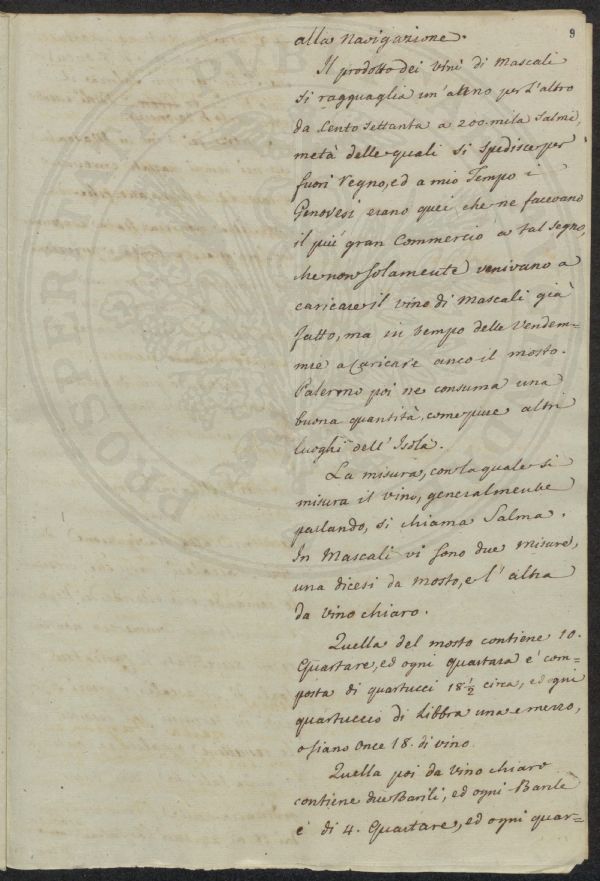 9
alla Navigazione.
Il prodotto dei Vini di Mascali
si ragguaglia un'anno per l'altro
da Cento settanta a 200. mila Salme,
metà delle quali si spedisce per
fuori Regno, ed a mio Tempo i
Genovesi erano quei che ne facevano
il più gran Commercio a tal segno,
che non solamente venivano a
caricare il vino di Mascali già
fatto, ma in tempo delle Vendem=
mie a Caricare anco il mosto.
Palermo poi ne consuma una
buona quantità, come pure altri
luoghi dell'Isola.
La misura, con la quale si
misura il vino, generalmente
parlando, si chiama Salma.
In Mascali vi sono due misure,
una dicesi da mosto, e l'altra
da vino chiaro.
Quella del mosto contiene 10.
Quartare, ed ogni quartara è com=
posta di quartucci 18 1/2 circa, ed ogni
quartuccio di Libbra una e mezzo,
o siano Once 18. di vino
Quella poi da vino chiaro
contiene due Barili, ed ogni Barile
è di 4. Quartare, ed ogni quar=